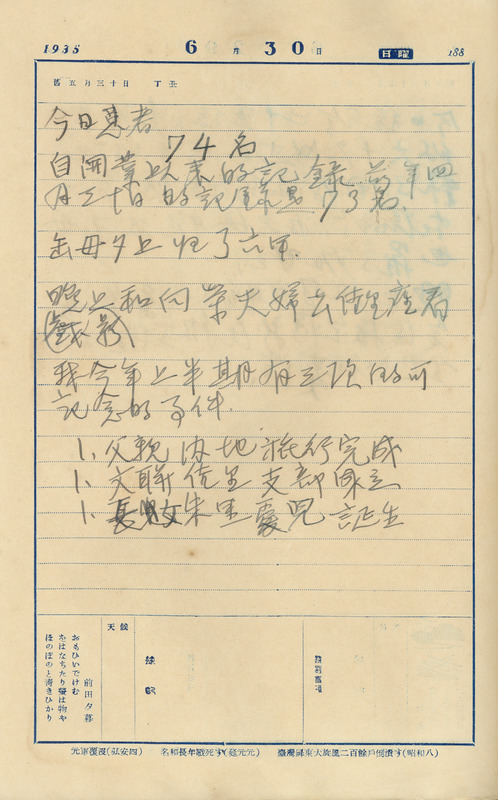 1935 6月30日 日曜 188
舊五月三十日 丁丑
今日患者
74名
自開業以来的記錄. 前年四
月三十日的記錄是73名.
岳母夕上归了六甲.
晚上和向荣夫婦去佳里座看
我今年上半期有三項的可
記念的事件.
1. 父親内地旅行完成
1. 文聯佳里支部成立
1. 長女朱里愛児誕生
天候
ほのぼのと青きひかり
かはなちたり螢は物や
おもひいでけむ
前田夕暮
元軍復寇す(弘安四) 名和長年戰死す(延元元) 臺灣屏東大旋風二百餘戶倒潰す(昭和八)